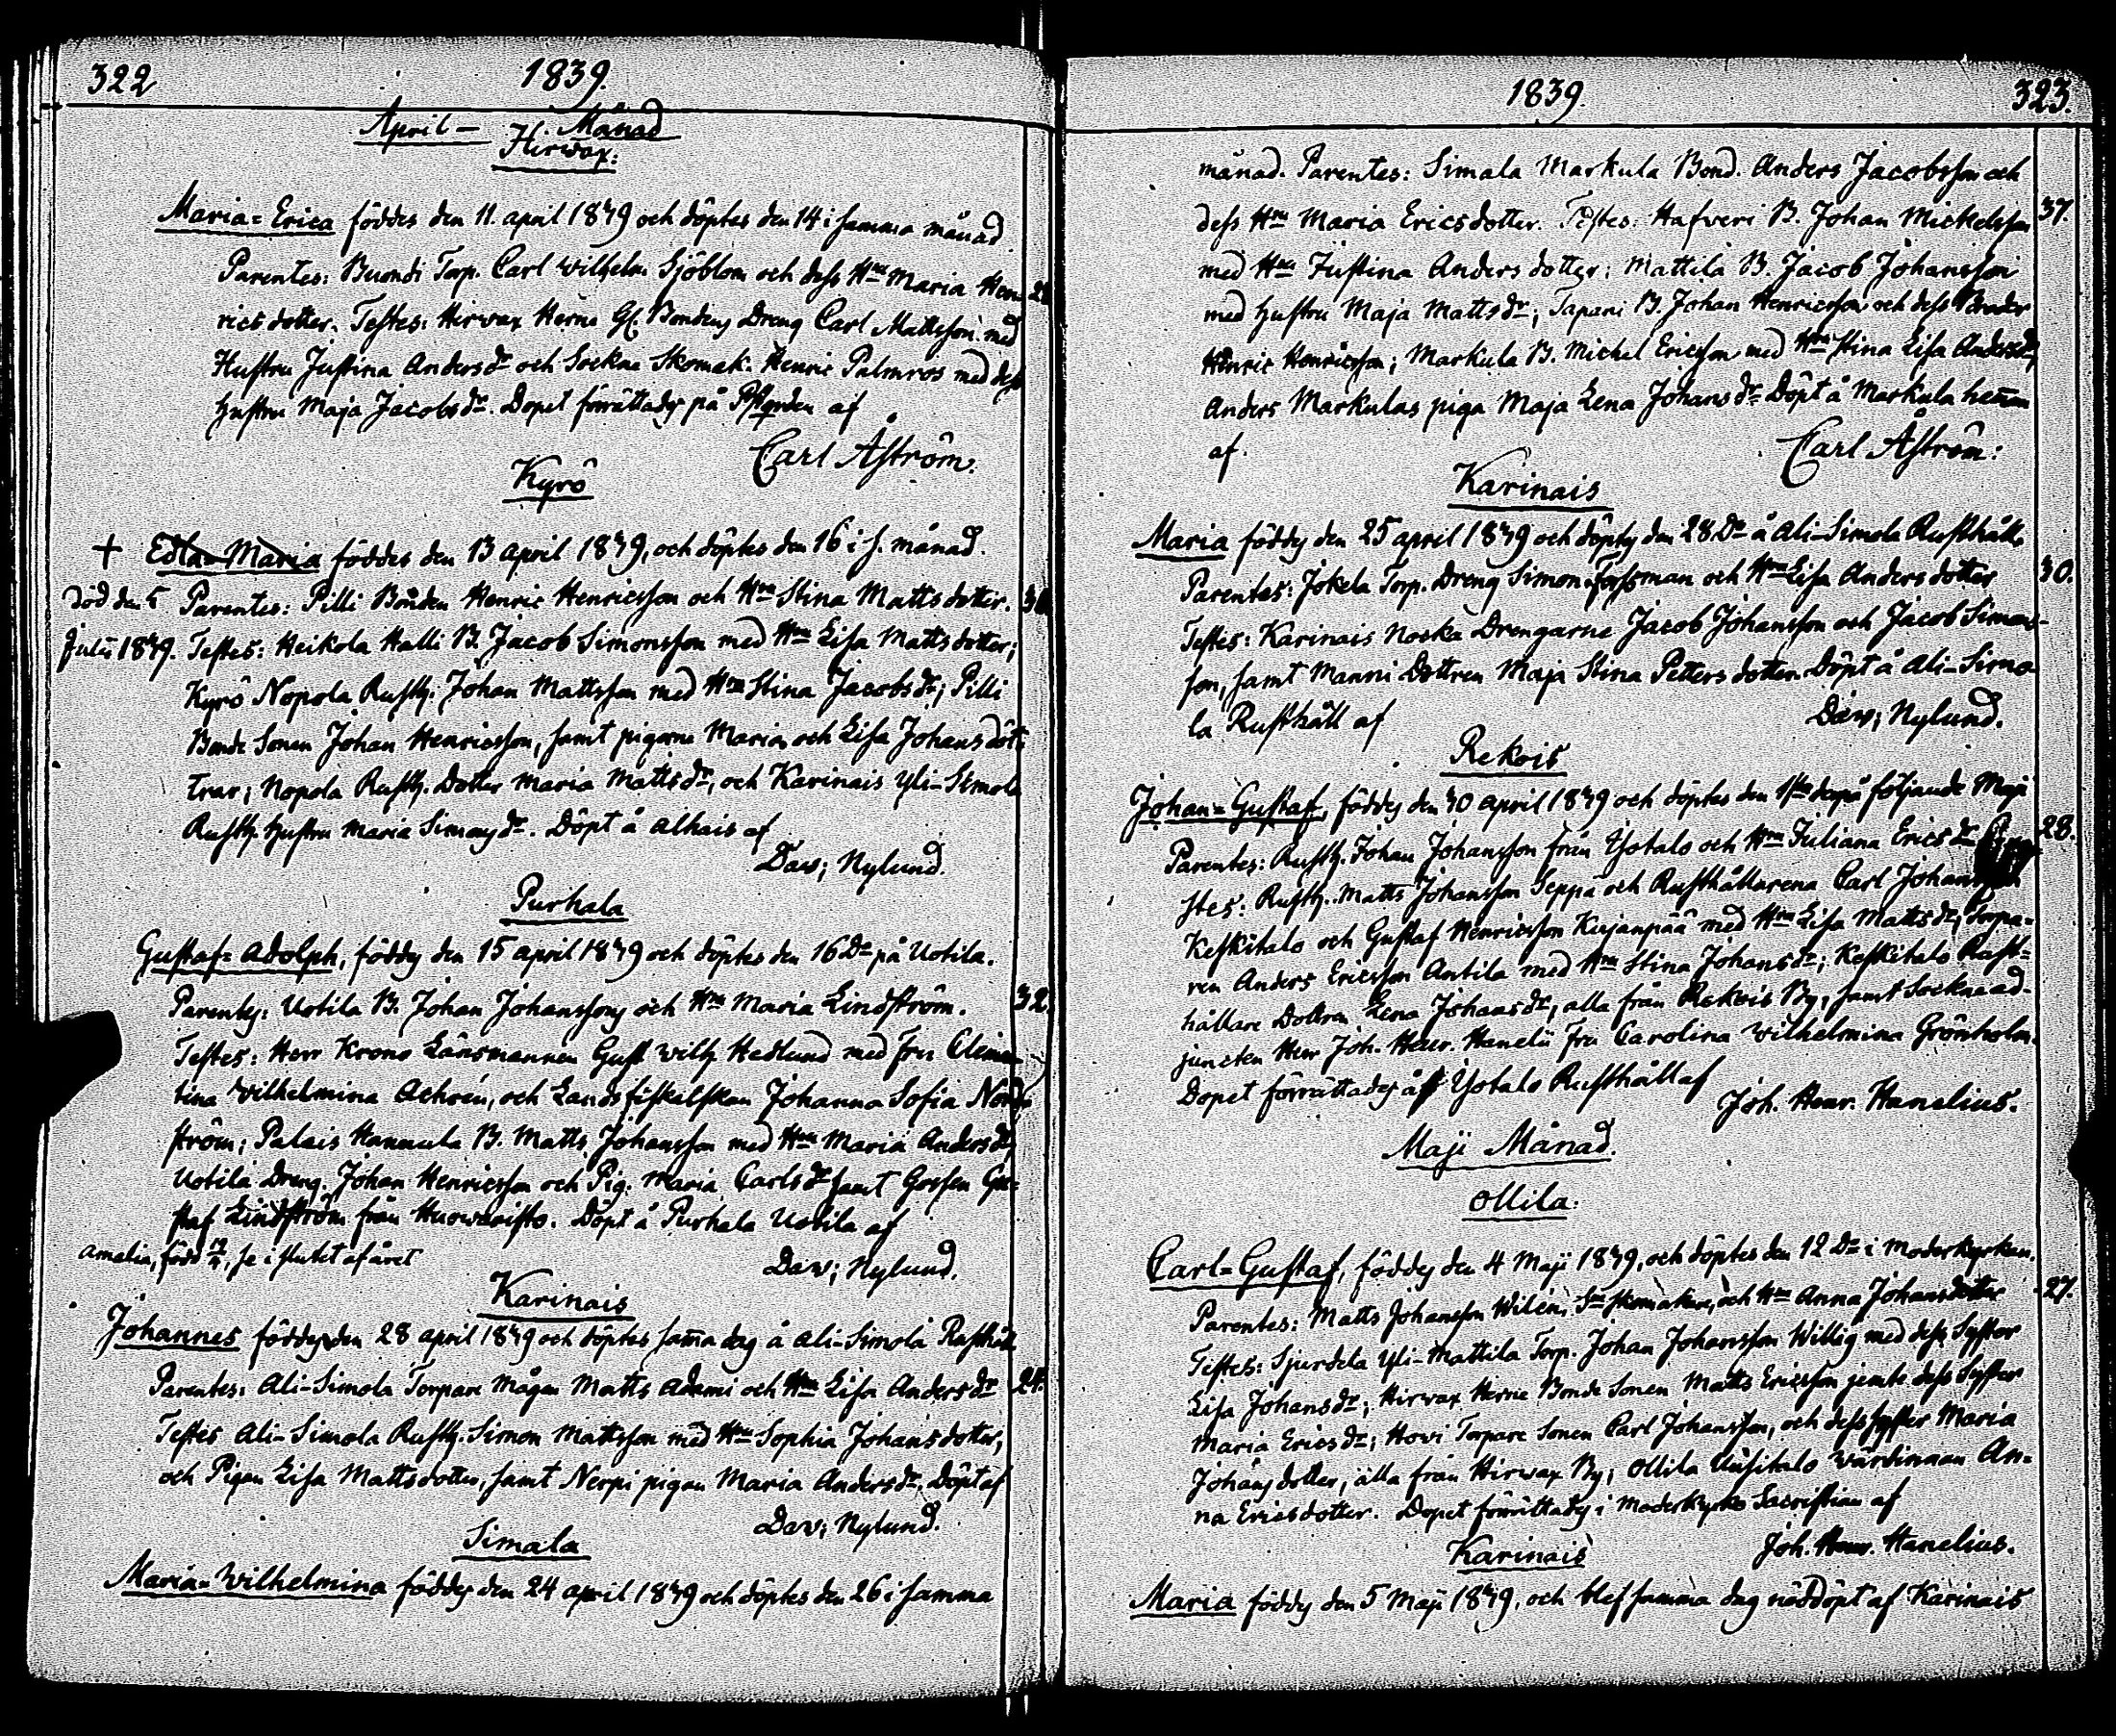 322
1839.
April – Månad
Hirwax:
Maria=Erica föddes den 11. april 1839 och döptes den 14 i samma månad
Parentes: Buondi Torp. Carl Wilhelm Sjöblom och dess Hru Maria Hen-
rics dotter. Testes: Hirvax Herne Gl. Bondens Dreng Carl Mattsson med
Hustru Justina Andersdr och Sockne Skomak. Henric Palmros med dess
hustru Maja Jacobsdr. Dopet förrättades på Pstgrden af
Carl Åström.
Kyrö
+ Edla=Maria föddes den 13 april 1839, och döptes den 16 i s. månad.
död den 5 Parentes: Pilli Bonden Henric Henricsson och Hru Stina Matts dotter.
Julii 1839. Testes: Heikola Halli B. Jacob Simonsson med Hru Lisa Matts dotter;
Kyrö Nopola Rusth. Johan Mattsson med Hru Stina Jacobsdr; Pilli
Bonde Sonen Johan Henricsson, samt pigorna Maria och Lisa Johans döt-
trar; Nopola Rusth. Dotter Maria Mattsdr, och Karinais Yli-Simola
Rusth. hustru Maria Simonsdr. Döpt å Alhais af
Dav; Nylund.
Purhala
Gustaf=Adolph, föddes den 15 april 1839 och döptes den 16 Dr på Uotila.
32.
Parentes: Uotila B. Johan Johansson och Hru Maria Lindström.
Testes: Herr Krono Länsmannen Gust. Wilh. Hedlund med Fru Clemen-
tina Wilhelmina Achrén, och Landsfiskalskan Johanna Sofia Nord-
ström; Palais Hannula B. Matts Johansson med Hru Maria Andersdr;
Uotila Dreng. Johan Henricsson och Pig. Maria Carlsdr samt Gossen Gu-
staf Lindström från Huovaristo. Döpt å Purhala Uotila af
Amalia, född, se i slutet af året
Dav; Nylund.
Karinais
Johannes föddes den 28 april 1839 och döptes samma dag å Ali-Simola Rusthåll.
Parentes: Ali-Simola Torpare mågen Matts Adami och Hru Lisa Andersdr
Testes Ali-Simola Rusth. Simon Mattsson med Hru Sophia Johans dotter,
och Pigan Lisa Mattsdotter, samt Nerpi pigan Maria Andersdr. Döpt af
Dav; Nylund.
Simala
Maria=Wilhelmina föddes den 24 april 1839 och döptes den 26 i samma
1839.
323.
månad. Parentes: Simala Markula Bond. Anders Jacobsson och
37.
dess Hru Maria Ericsdotter. Testes: Hafveri B. Johan Mickelsson
med Hru Justina Anders dotter; Mattila B. Jacob Johansson
med hustru Maja Mattsdr; Tapani B. Johan Henricsson och dess Broder
Henric Henricsson; Markula B. Michel Ericsson med Hru Stina Lisa Andersdr,
Anders Markulas piga Maja Lena Johansdr. Döpt å Markula heman
af.
Carl Åström:
Karinais
Maria föddes den 25 april 1839 och döptes den 28 Dr å Ali-Simola Rusthåll.
30.
Parentes: Jokela Torp. Dreng Simon Forssman och Hru Lisa Anders dotter
Testes: Karinais Noska Drengarne Jacob Johansson och Jacob Simons-
son, samt Manni Dottren Maja Stina Petters dotter. Döpt å Ali-Simo-
la Rusthåll af
Dav; Nylund.
Rekois
Johan=Gustaf, föddes den 30 april 1839 och döptes den 1sta derpå följande Maji
28.
Parentes: Rusth. Johan Johansson från Yotalo och Hru Juliana Ericsdr
stes: Rusth. Matts Johansson Seppä och Rusthållarena Carl Johansson
Keskitalo och Gustaf Henricsson Kujanpää med Hru Lisa Mattsdr; Torpa-
ren Anders Ericsson Antila med Hru Stina Johansdr; Keskitalo Rust-
hållare Dottren Lena Johansdr, alla från Rekois By; samt Sockne ad-
juncten Herr Joh. Henr. Hanelii Fru Carolina Wilhelmina Grönholm.
Dopet förrättades å Yotalo Rusthåll af
Joh. Henr. Hanelius.
Maji Månad.
Ollila.
Carl=Gustaf, föddes den 4 Maji 1839, och döptes den 12 Dr i Moderkyrkan.
27.
Parentes: Matts Johansson Wilén, Sn skomakare, och Hru Anna Johansdotter
Testes: Sjurdela Yli-Mattila Torp. Johan Johansson Willig med dess Syster
Lisa Johansdr; Hirvax Herne Bonde Sonen Matts Ericsson jemte dess Syster
Maria Ericsdr; Hovi Torpare Sonen Carl Johansson, och dess syster Maria
Johans dotter, alla från Hirvax By; Ollila Uusitalo värdinnan An-
na Ericsdotter. Dopet förrättades i Moderkyrko Sacristian af
Joh. Henr. Hanelius.
Karinais
Maria föddes den 5 Maji 1839, och blef samma dag nöddöpt af Karinais